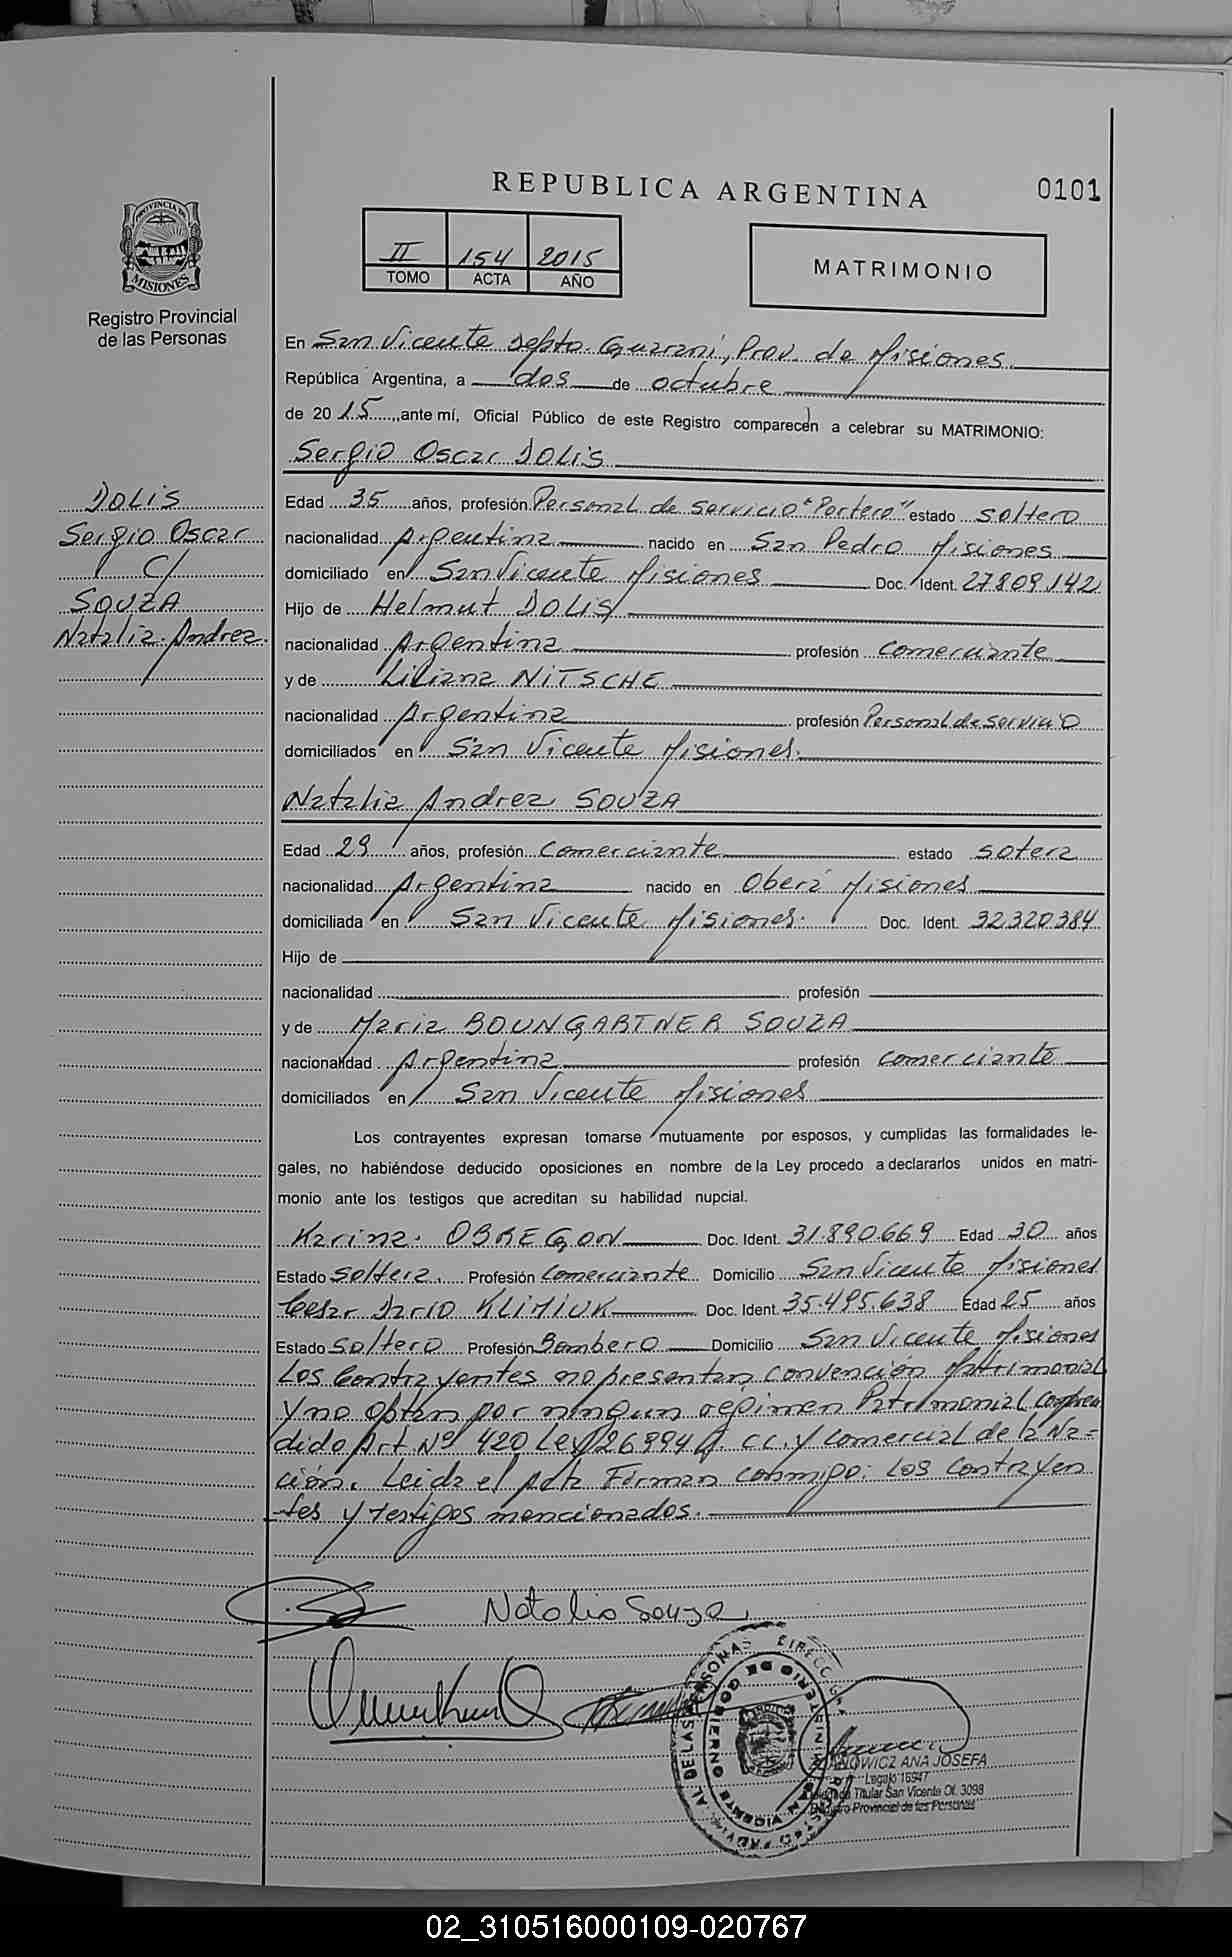 REPUBLICA ARGENTINA
0101
II 154 2015
TOMO ACTA AÑO
MATRIMONIO
PROVINCIA DE
MISIONES
Registro Provincial
de las Personas
En San Vicente Depto. Guaraní, Prov. de Misiones
República Argentina, a dos de octubre
de 2015, ante mí, Oficial Público de este Registro comparecen a celebrar su MATRIMONIO:
Sergio Oscar DOLIS
DOLIS
Sergio Oscar
C/
SOUZA
Natalia Andrea.
Edad 35 años, profesión Personal de Servicio "Portero" estado soltero
nacionalidad Argentina nacido en San Pedro Misiones
domiciliado en San Vicente Misiones Doc. Ident. 27.809.142
Hijo de Helmut DOLIS
nacionalidad Argentina profesión comerciante
y de Liliana NITSCHE
nacionalidad Argentina profesión Personal de servicio
domiciliados en San Vicente Misiones.
Natalia Andrea SOUZA
Edad 29 años, profesión comerciante estado sotera
nacionalidad Argentina nacido en Oberá Misiones
domiciliada en San Vicente Misiones. Doc. Ident. 32.320.384
Hijo de
nacionalidad profesión
y de Maria BOUNGARTNER SOUZA
nacionalidad Argentina profesión comerciante
domiciliados en San Vicente Misiones
Los contrayentes expresan tomarse mutuamente por esposos, y cumplidas las formalidades le-
gales, no habiéndose deducido oposiciones en nombre de la Ley procedo a declararlos unidos en matri-
monio ante los testigos que acreditan su habilidad nupcial.
Karina. OBREGON Doc. Ident. 31.890.669 Edad 30 años
Estado soltera. Profesión Comerciante Domicilio San Vicente Misiones
Cesar Dario KLIMIUK Doc. Ident. 35.495.638 Edad 25 años
Estado soltero Profesión Bombero Domicilio San Vicente Misiones
Los Contrayentes no presentan convención Matrimonial
y no optan por ningun régimen Patrimonial compren
dido Art Nº 420 Ley 26994 C.C. y Comercial de la Na=
ción. Leida el acta Firman conmigo: los contrayen
tes y testigos mencionados.
Natalia Souza
ANOWICZ ANA JOSEFA
Legajo 16947
Titular San Vicente Of. 3098
Registro Provincial de las Personas
02_310516000109-020767